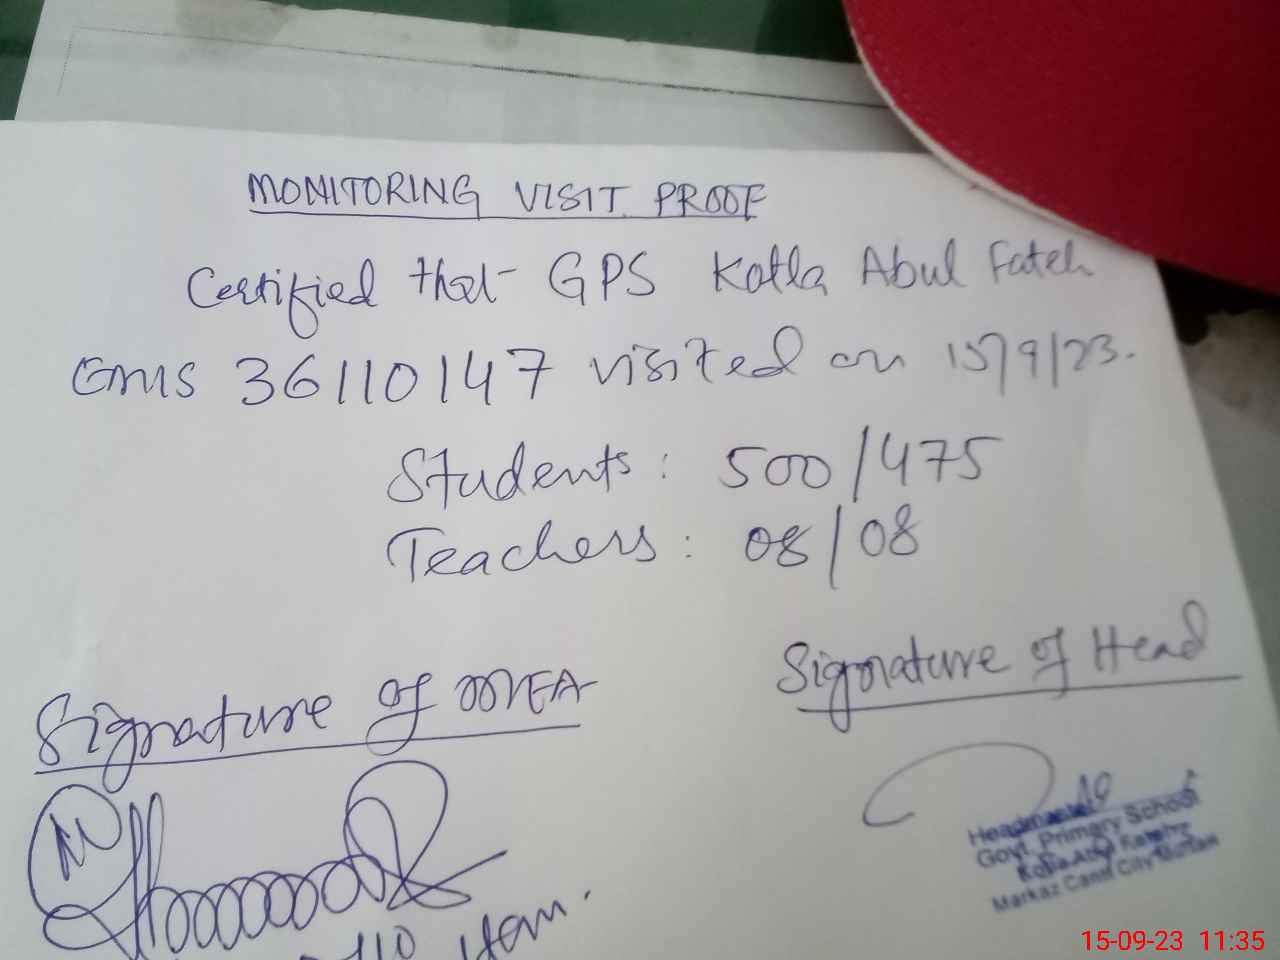 MONITORING VISIT PROOF
Certified that GPS Kotla Abul Fateh
EMIS 36110147 visited on 15/9/23.
Students: 500/475
Teachers: 08/08
Signature of MEA
Signature of Head
Headmaster
Govt. Primary School
Kotla Abul
Markaz Cantt City Multan
15-09-23 11:35